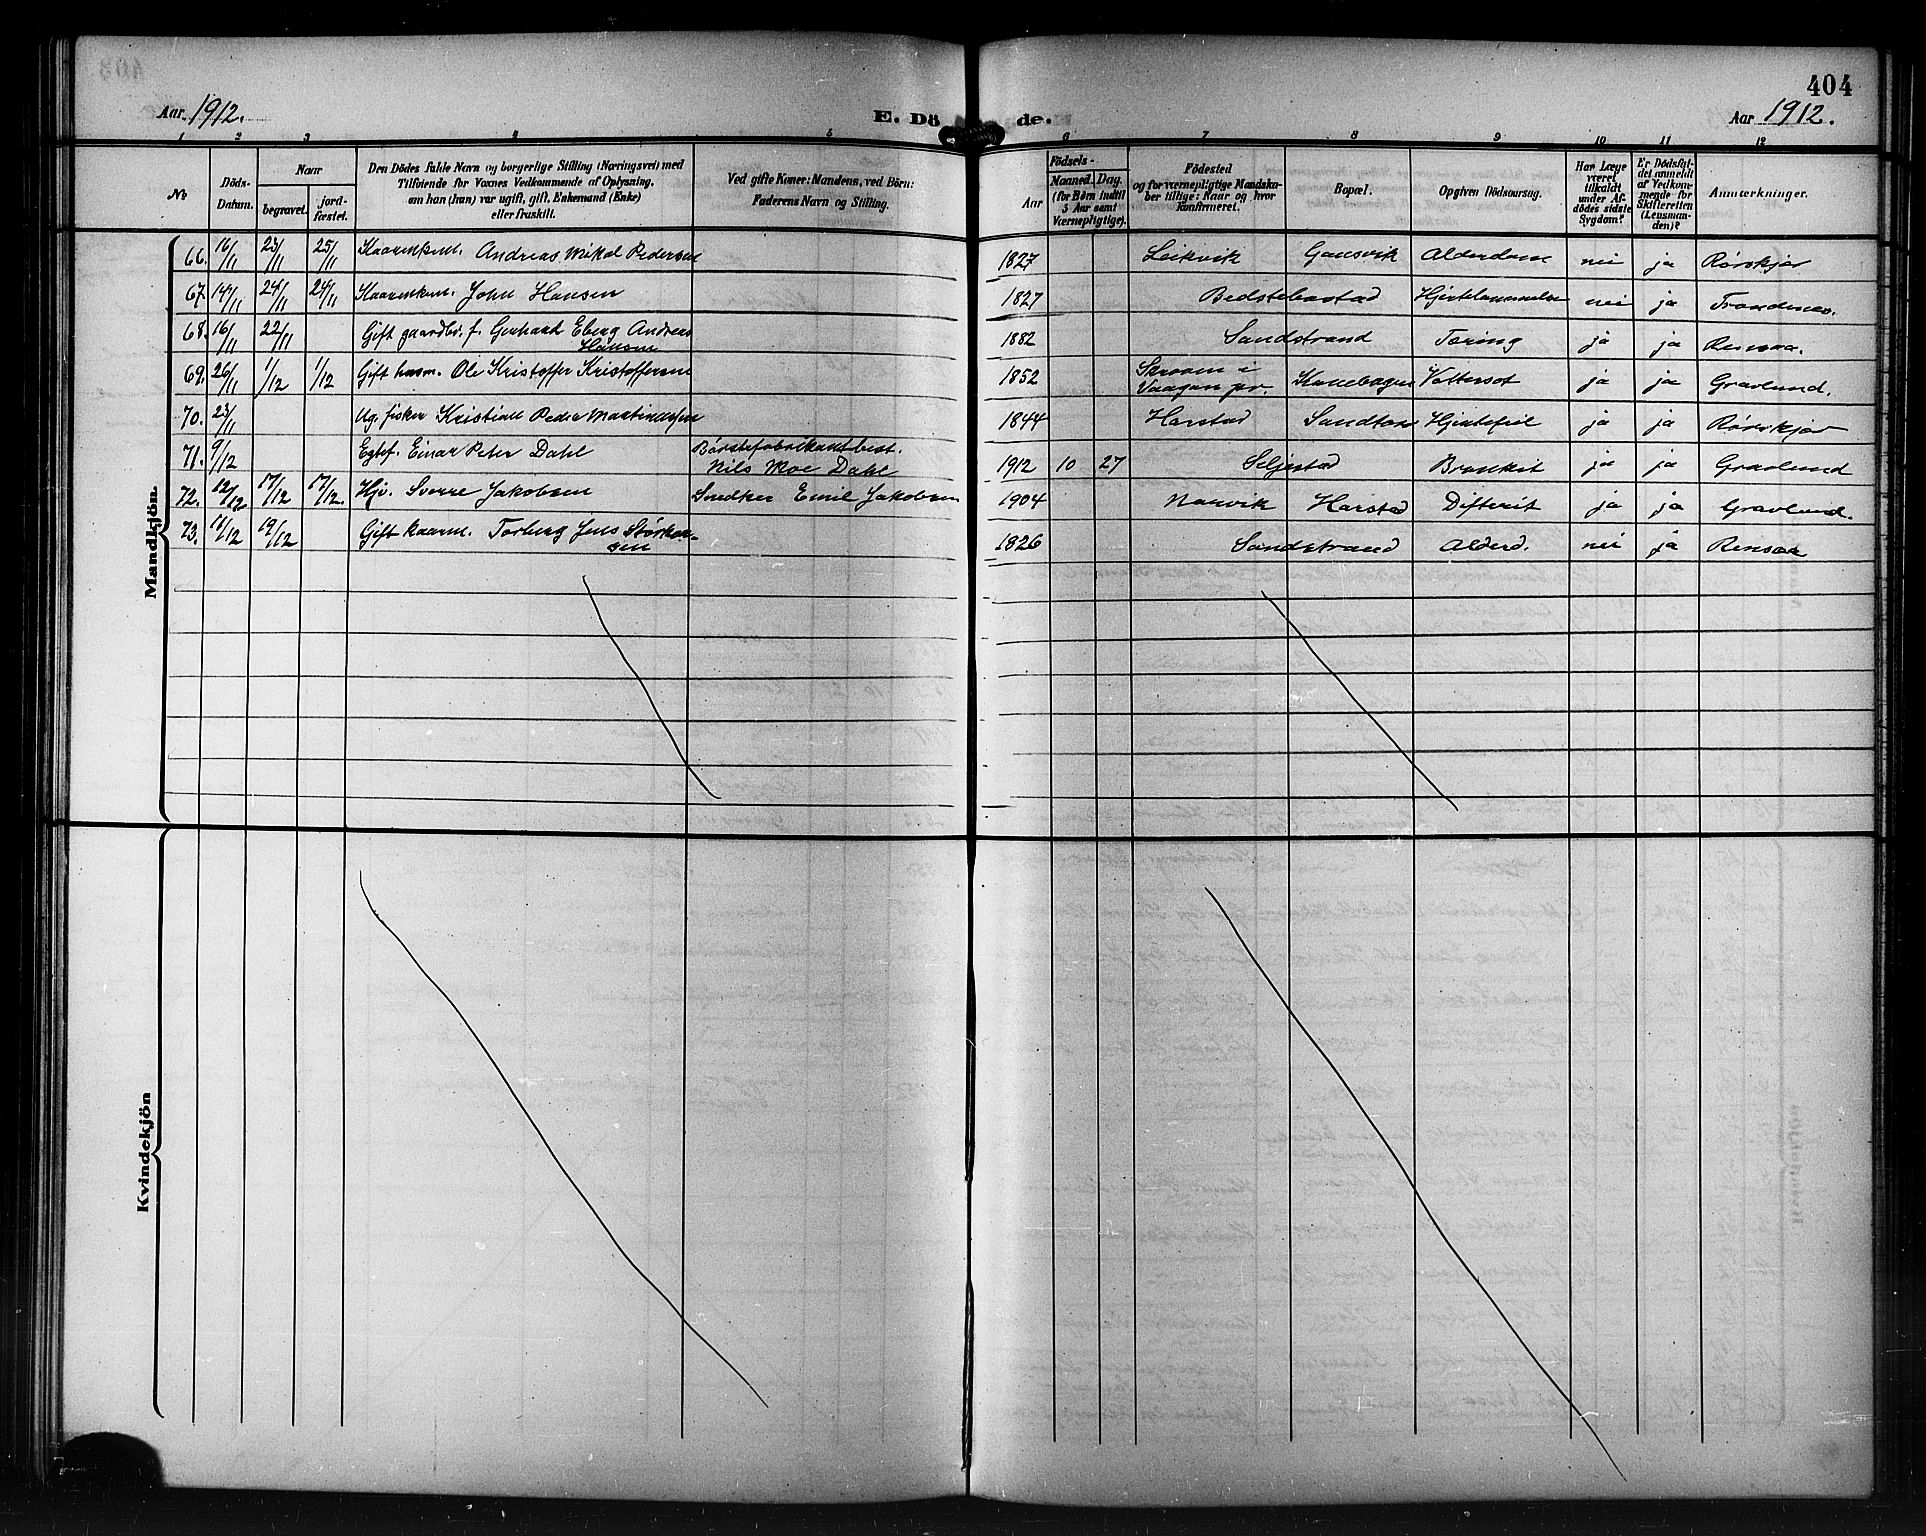 404
Aar 1912.
E. Dö de.
Aar 1912.
1 2 3 4 5 6 7 8 9 10 11 12
No
Döds-Datum.
Naar
begravet.
jord-fæstet.
Den Dödes fulde Navn og borgerlige Stilling (Næringsvei) med
Tilføiende for Voxnes Vedkommende af Oplysning,
om han (hun) var ugift, gift, Enkemand (Enke)
eller fraskilt.
Ved gifte Koner: Mandens, ved Börn:
Faderens Navn og Stilling.
Aar
Födsels-
Maaned. Dag.
(for Börn indtil
5 Aar samt
Værnepligtige).
Födested
og for værnepligtige Mandska-
ber tillige: Naar og hvor
Konfirmeret.
Bopæl.
Opgiven Dödsaarsag.
Har Læge
været
tilkaldt
under Af-
dödes sidste
Sygdom?
Er Dödsfal-
det anmeldt
af Vedkom-
mende for
Skifteretten
(Lensman-
den)?
Anmærkninger.
Mandkjön.
66. 16/11 23/11 25/11 Kaarenkem. Andreas Mikal Pedersen 1827 Leikvik Gansvik Alderdom nei ja Rørskjær
67. 14/11 24/11 24/11 Kaarenkem. John Hansen 1827 Bedstebostad Hjertelammelse nei ja Trondenes.
68. 16/11 22/11 Gift gaardbr. f. Gerhard Eberg Andreas
Hansen 1882 Sandstrand Tæring ja ja Rensaa.
69. 26/11 1/12 1/12 Gift husm. Ole Kristoffer Kristoffersen 1852 Skroven i
Vaagan pr. Kanebogen Vattersot ja ja Gravlund.
70. 23/11 Ug. fisker Kristian Peder Martinussen 1844 Harstad Sandtorv Hjertefeil ja ja Rørskjær
71. 9/12 Egtef. Einar Peter Dahl Børstefabrikantbest.
Nils Moe Dahl 1912 10 27 Seljestad Bronkit ja ja Gravlund
72. 12/12 17/12 17/12. Hjv. Sverre Jakobsen Snedker Emil Jakobsen 1904 Narvik Harstad Difterit ja ja Gravlund.
73. 11/12 19/12 Gift kaarm. Torberg Jens Størker-
sen 1826 Sandstrand Alderd. nei ja Rensaa
Kvindekjön